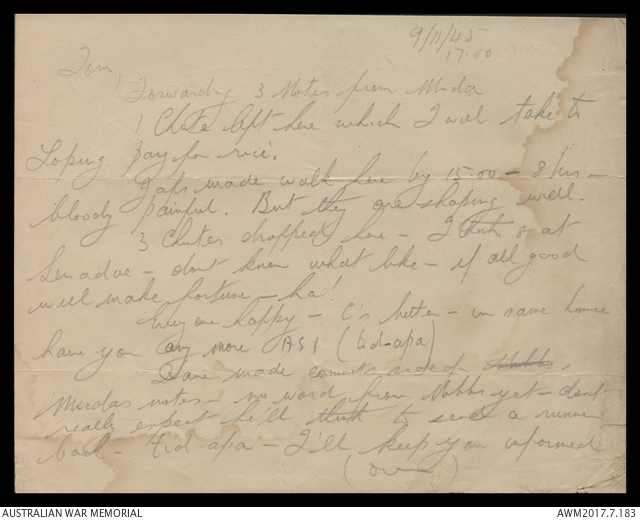 9/11/45
17.00
Tom,
Forwarding 3 Notes from Muda
1 Chute left here which I will take to
Loping pay for rice.
Japs made walk here by 15.00 - 8 hrs -
bloody painful. But they are shaping well.
3 Chutes dropped here - I think 8 at
- dont know what like - if all good
will make fortune - ha!
Everyone happy - C's better - in same house
have you any more (tid-apa)
Dave made comments aside of
Murdas notes - no word from Mibbs yet - dont
really expect he'll think to send a runner
back - tid-apa - I'll keep you informed
(Over)
AUSTRALIAN WAR MEMORIAL
AWM2017.7.183